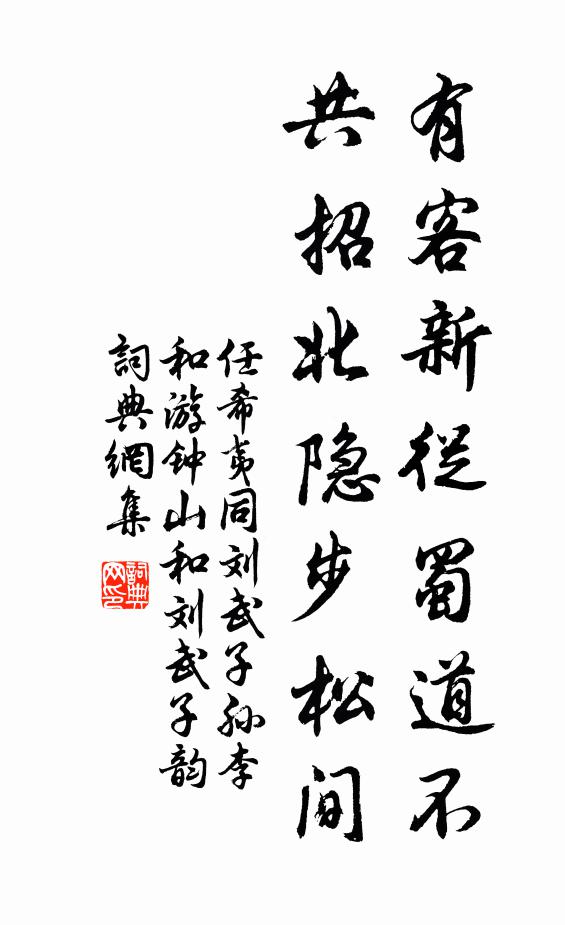 有客新从蜀道不
共招北隐步松间
任希夷同刘武子孙李
和游钟山和刘武子韵
詞典網集
詞典网印